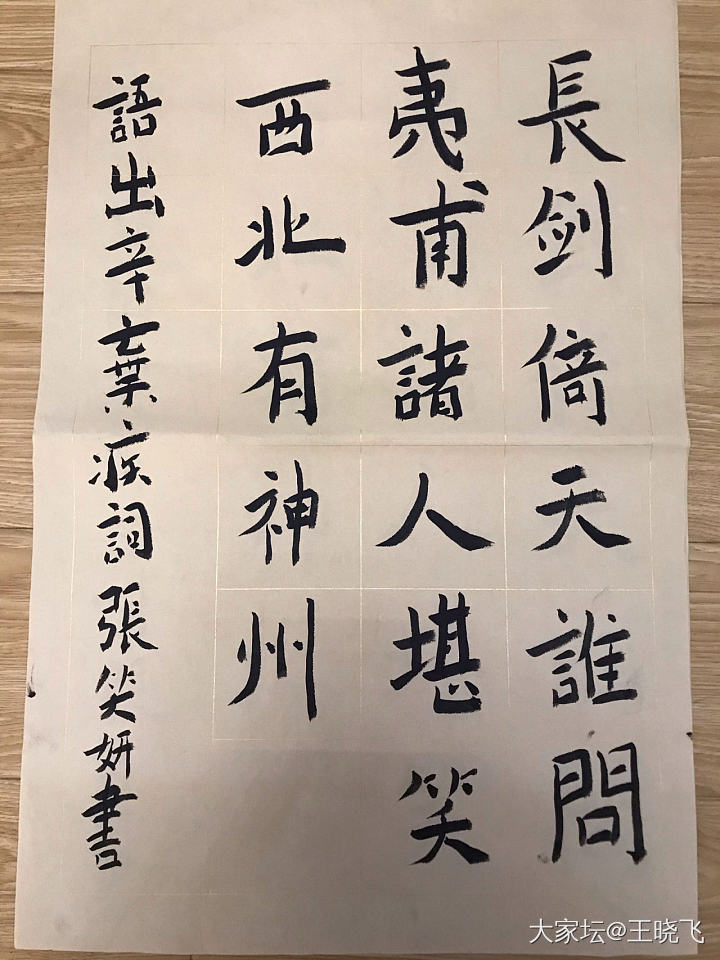 長劍倚天誰問
夷甫諸人堪笑
西北有神州
語出辛棄疾詞張笑妍書
大家坛@王晓飞